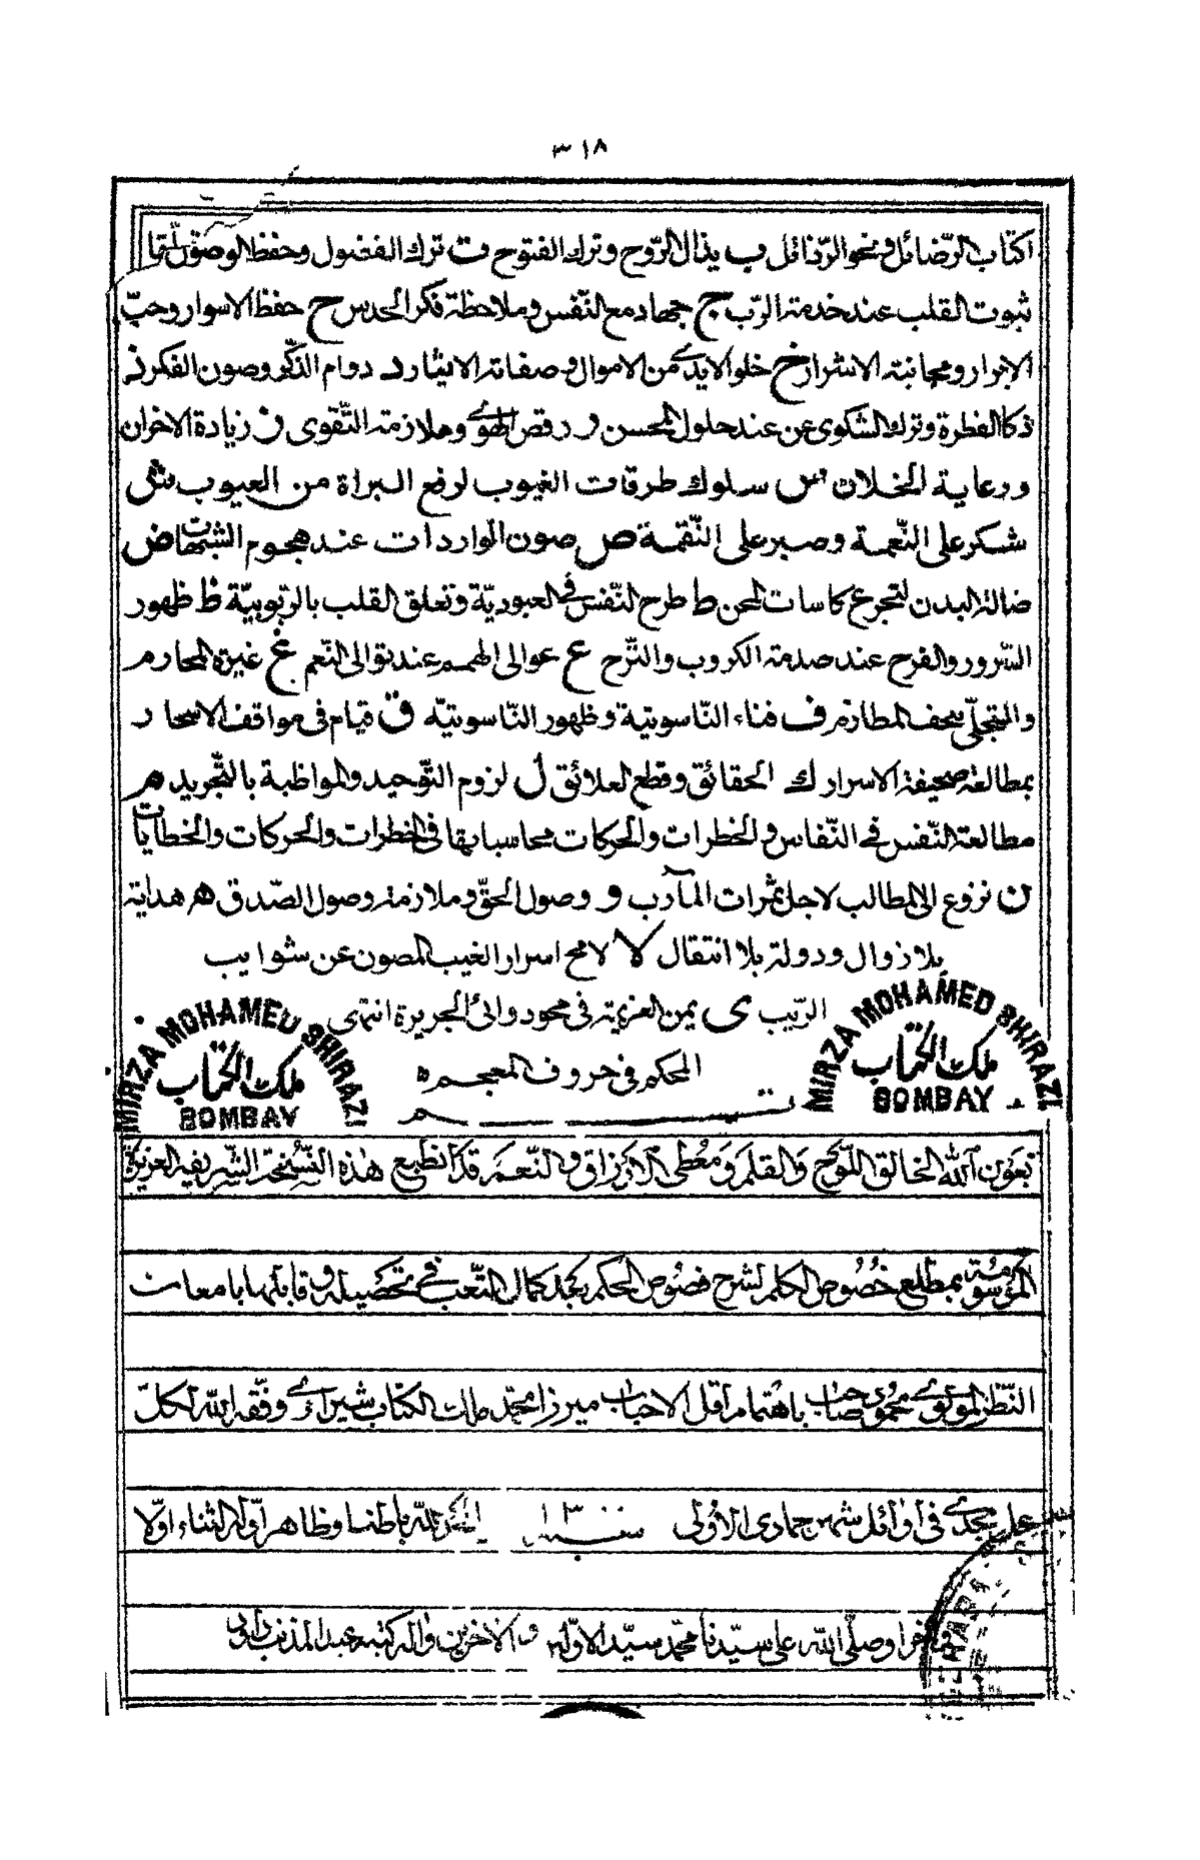 ٣١٨
اكتاب الرضائل ومحو الرذائل ب بذال الروح وترك الفتوح ت ترك الفضول وحفظ الوصول
ثبوت القلب عند خدمة الرب ج جهاد مع النفس وملاحظة فكر الحدس ح حفظ الاسوار وحب
الابرار ومجانبة الاشرار خ خلو الايدى من الاموال وصفاته الايثار د دوام الذكر وصون الفكر ذ
ذكا الفطرة وترك الشكوى عن عند حلول المحسن ر رقص الهوى وملازمة التقوى ز زيادة الاخزان
ورعاية الخلان س سلوك طرقات الغيوب لرفع البراة من العيوب ش
شكر على النعمة وصبر على النقمة ص صون الواردات عند هجوم الشبهات ض
ضالة البدن لتجرع كاسات المحن ط طرح النفس فى العبودية وتعلق القلب بالربوبية ظ ظهور
السرور والفرح عند صدمة الكروب والترح ع عوالى الهمم عند توالى النعم غ غيرة المحارم
والتجلى بحف المطارم ف فناء الناسوتية وظهور الناسوتيه ق قيام فى مواقف الاسحار
بمطالعة صحيفة الاسرار ك الحقائق وقطع العلائق ل لزوم التوحيد والمواظبة بالتجريد م
مطالعة النفس فى النفاس والخطرات والحركات محاسباتها فى الخطرات والحركات والخطايات
ن نزوع الى المطالب لاجل ثمرات المآرب و وصول الحق وملازمة وصول الصدق ه هداية
بلا زوال ودولة بلا انتقال لا لامح اسرار الغيب المصون عن شوايب
الريب ى يمن العزيمة فى محو دوائ الجريرة انتهى
المحكم فى حروف المعجمه
تم
MIRZA MOHAMED SHIRAZI
ملك الكتاب
BOMBAY
MIRZA MOHAMED SHIRAZI
ملك الكتاب
BOMBAY
بعون الله الخالق اللوح والقلم ومعطى الارزاق والنعم قد انطبع هذه النسخة الشريفه العزيزة
الموسومة بمطلع خصوص الكلم لشرح فصوص الحكم بجد كمال التعب فى تحصيله وقابلها بامعان
النظر المولوى محمود صاحب باهتمام اقل الاحباب ميرزا محمد ملك الكتاب شيرازى وفقه الله لكل
فى اوائل شهر جمادى الاولى سنه ١٣٠٠ لله باطنا وظاهرا وله الثناء اولا
واخرا وصلى الله على سيدنا محمد سيد الاولين والاخرين واله كتبه عبد المذنب